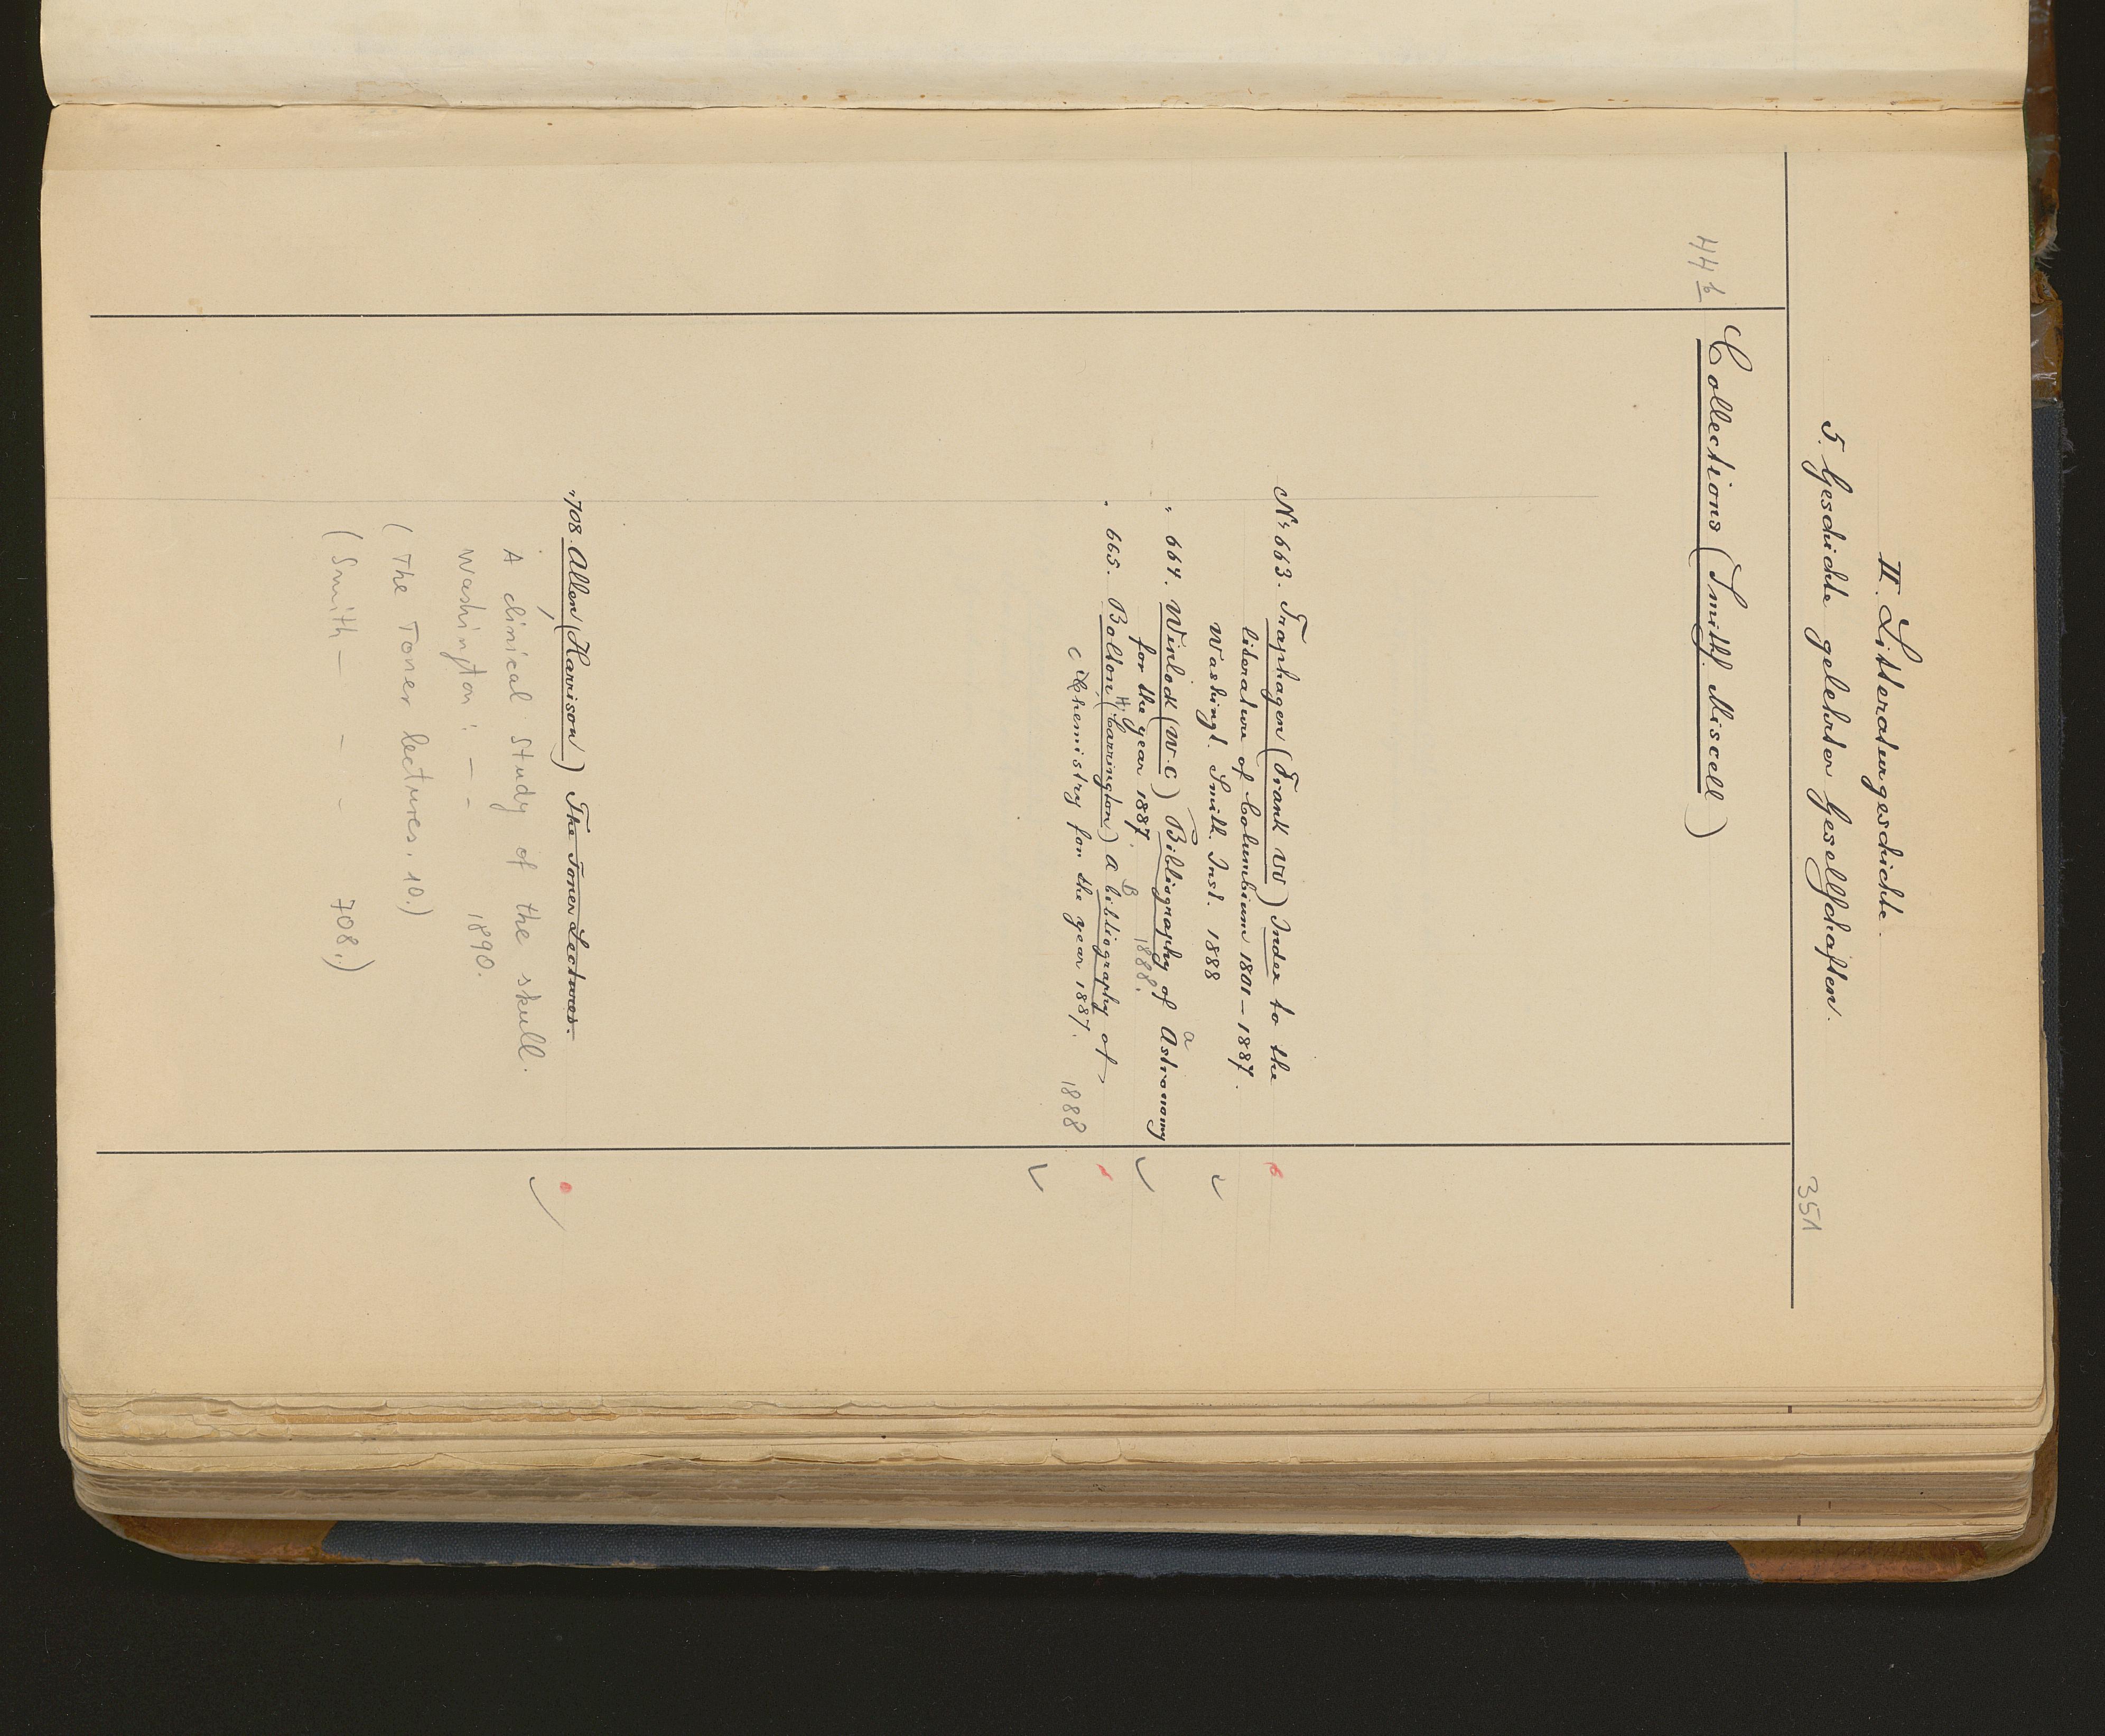 II. Litteraturgeschichte.
5. Geschichte gelehrter Gesellschaften.
351
44 b
Collections (Smith. Miscell)
No 663. Traphagen (Frank W) Index to the
literature of Columbium 1801-1887.
Washingt. Smith. Inst. 1888
" 664. Winlock (W. C) Bibliography of Astronomy
a
for the year 1887. 1888.
" 665. Bolton (H. Carrington) A bibliography of
B
chemistry for the year 1887. 1888
" 708. Allen (Harrison) The Toner Lectures.
A clinical study of the skull.
Washington: - - 1890.
(The Toner lectures. 10.)
(Smith - - - 708.)